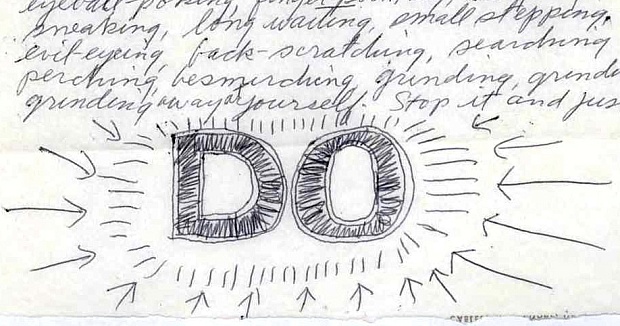 eyeball-poking, finger
sneaking, long waiting, small stepping,
evil-eyeing, back-scratching, searching
perching, besmirching, grinding, grinding
grinding away at yourself. Stop it and jus
DO